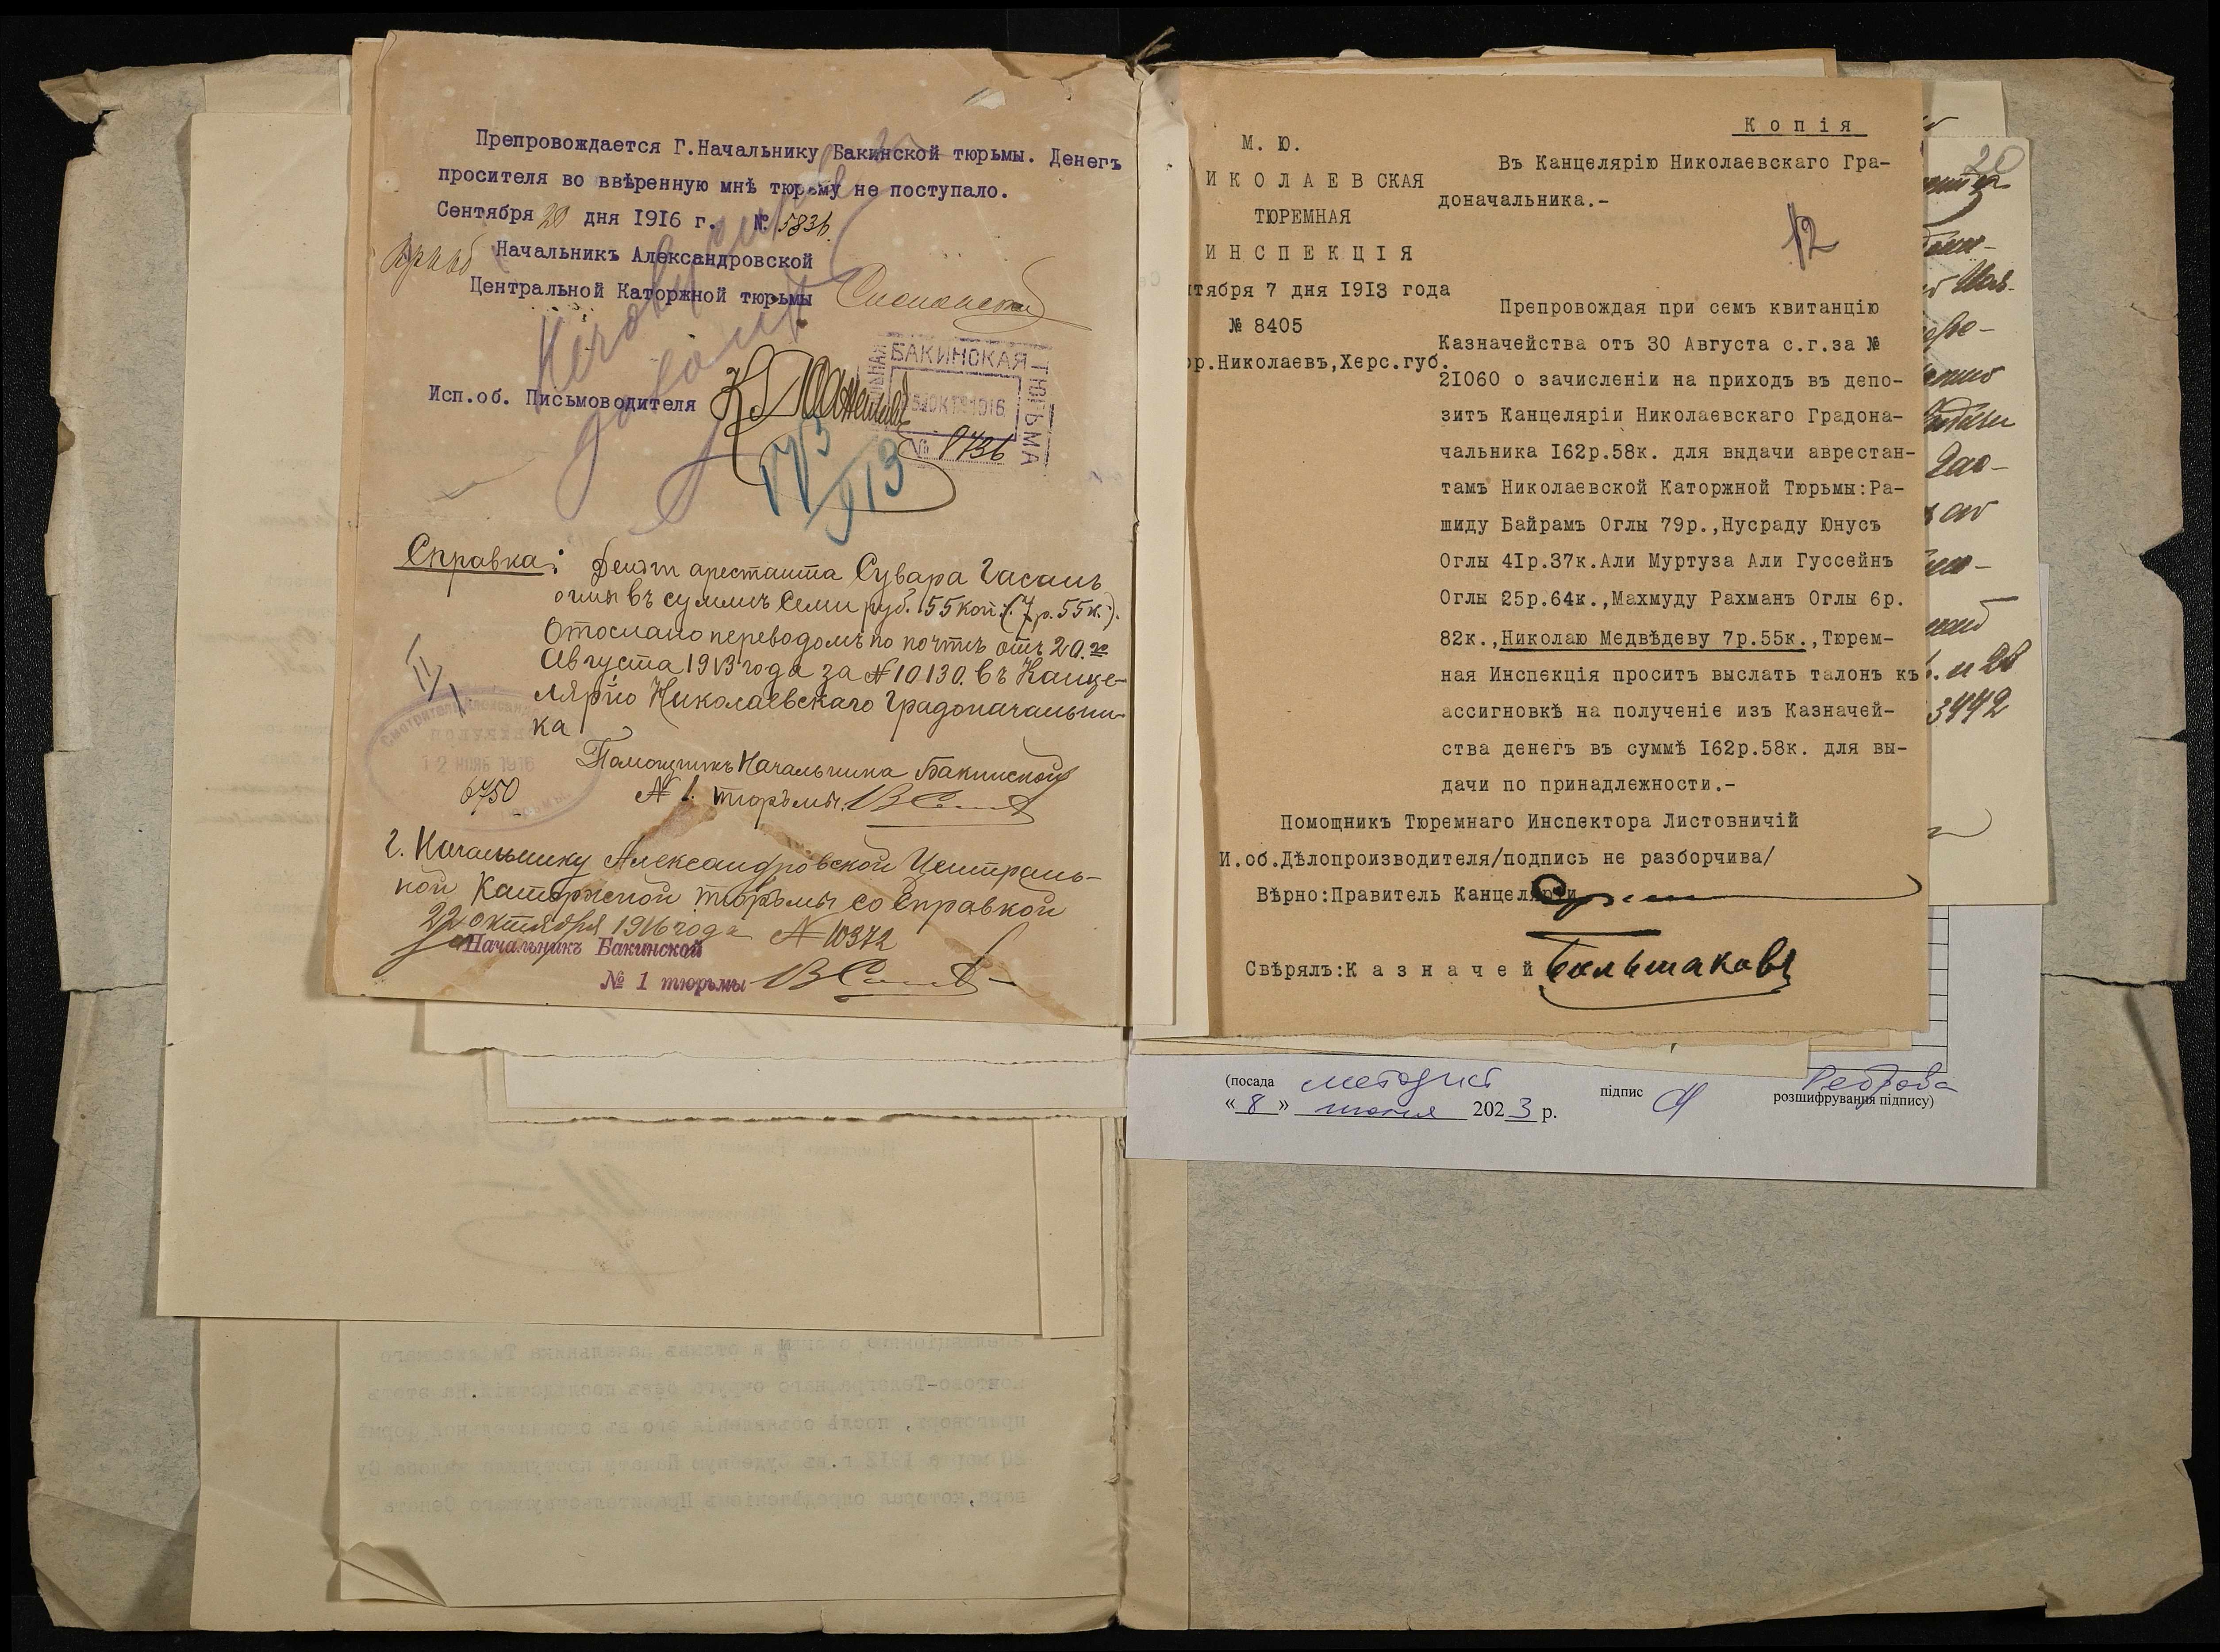 Препровождается Г.Начальнику Бакинской тюрьмы. Денегъ
просителя во ввѣренную мнѣ тюрьму не поступало.
Сентября 20 дня 1916 г. № 5836
Начальникъ Александровской
Центральной Каторжной тюрьмы
Исп.об. Письмоводителя
БАКИНСКАЯ
ТЮРЬМА
5 ОКТ 1916
№ 8736
Справка: Денги арестанта Сувара Гасанъ
оглы въ суммѣ Семи руб. 55 коп. (7 р. 55 к.).
Отослано переводомъ по почтѣ отъ 20.го
Августа 1913 года за № 10130. въ Канце-
лярiю Николаевскаго Градоначальни-
ка
12 НОЯБ 1916
6750
Помощникъ Начальника Бакинской
№ 1. тюрьмы.
Г. Начальнику Александровской Централь-
ной Каторжной тюрьмы со справкой
22 октября 1916 года № 10372
Начальникъ Бакинской
№ 1 тюрьмы
Копiя
М. Ю.
ИКОЛАЕВСКАЯ
ТЮРЕМНАЯ
ИНСПЕКЦIЯ
тября 7 дня 1913 года
№ 8405
ор.Николаевъ,Херс.губ.
Въ Канцелярiю Николаевскаго Гра-
доначальника.-
12
Препровождая при семъ квитанцiю
Казначейства отъ 30 Августа с.г.за №
21060 о зачисленiи на приходъ въ депо-
зитъ Канцелярiи Николаевскаго Градона-
чальника 162р.58к. для выдачи аврестан-
тамъ Николаевской Каторжной Тюрьмы:Ра-
шиду Байрамъ Оглы 79р.,Нусраду Юнусъ
Оглы 41р.37к.Али Муртуза Али Гуссейнъ
Оглы 25р.64к.,Махмуду Рахманъ Оглы 6р.
82к.,Николаю Медвѣдеву 7р.55к.,Тюрем-
ная Инспекцiя проситъ выслать талонъ къ
ассигновкѣ на полученiе изъ Казначей-
ства денегъ въ суммѣ 162р.58к. для вы-
дачи по принадлежности.-
Помощникъ Тюремнаго Инспектора Листовничiй
И.об.Дѣлопроизводителя/подпись не разборчива/
Вѣрно:Правитель Канцелярiи
Свѣрялъ:Казначей Большаковъ
20
3442
(посада методист підпис Реброва
« 8 » июня 2023 р. розшифрування підпису)